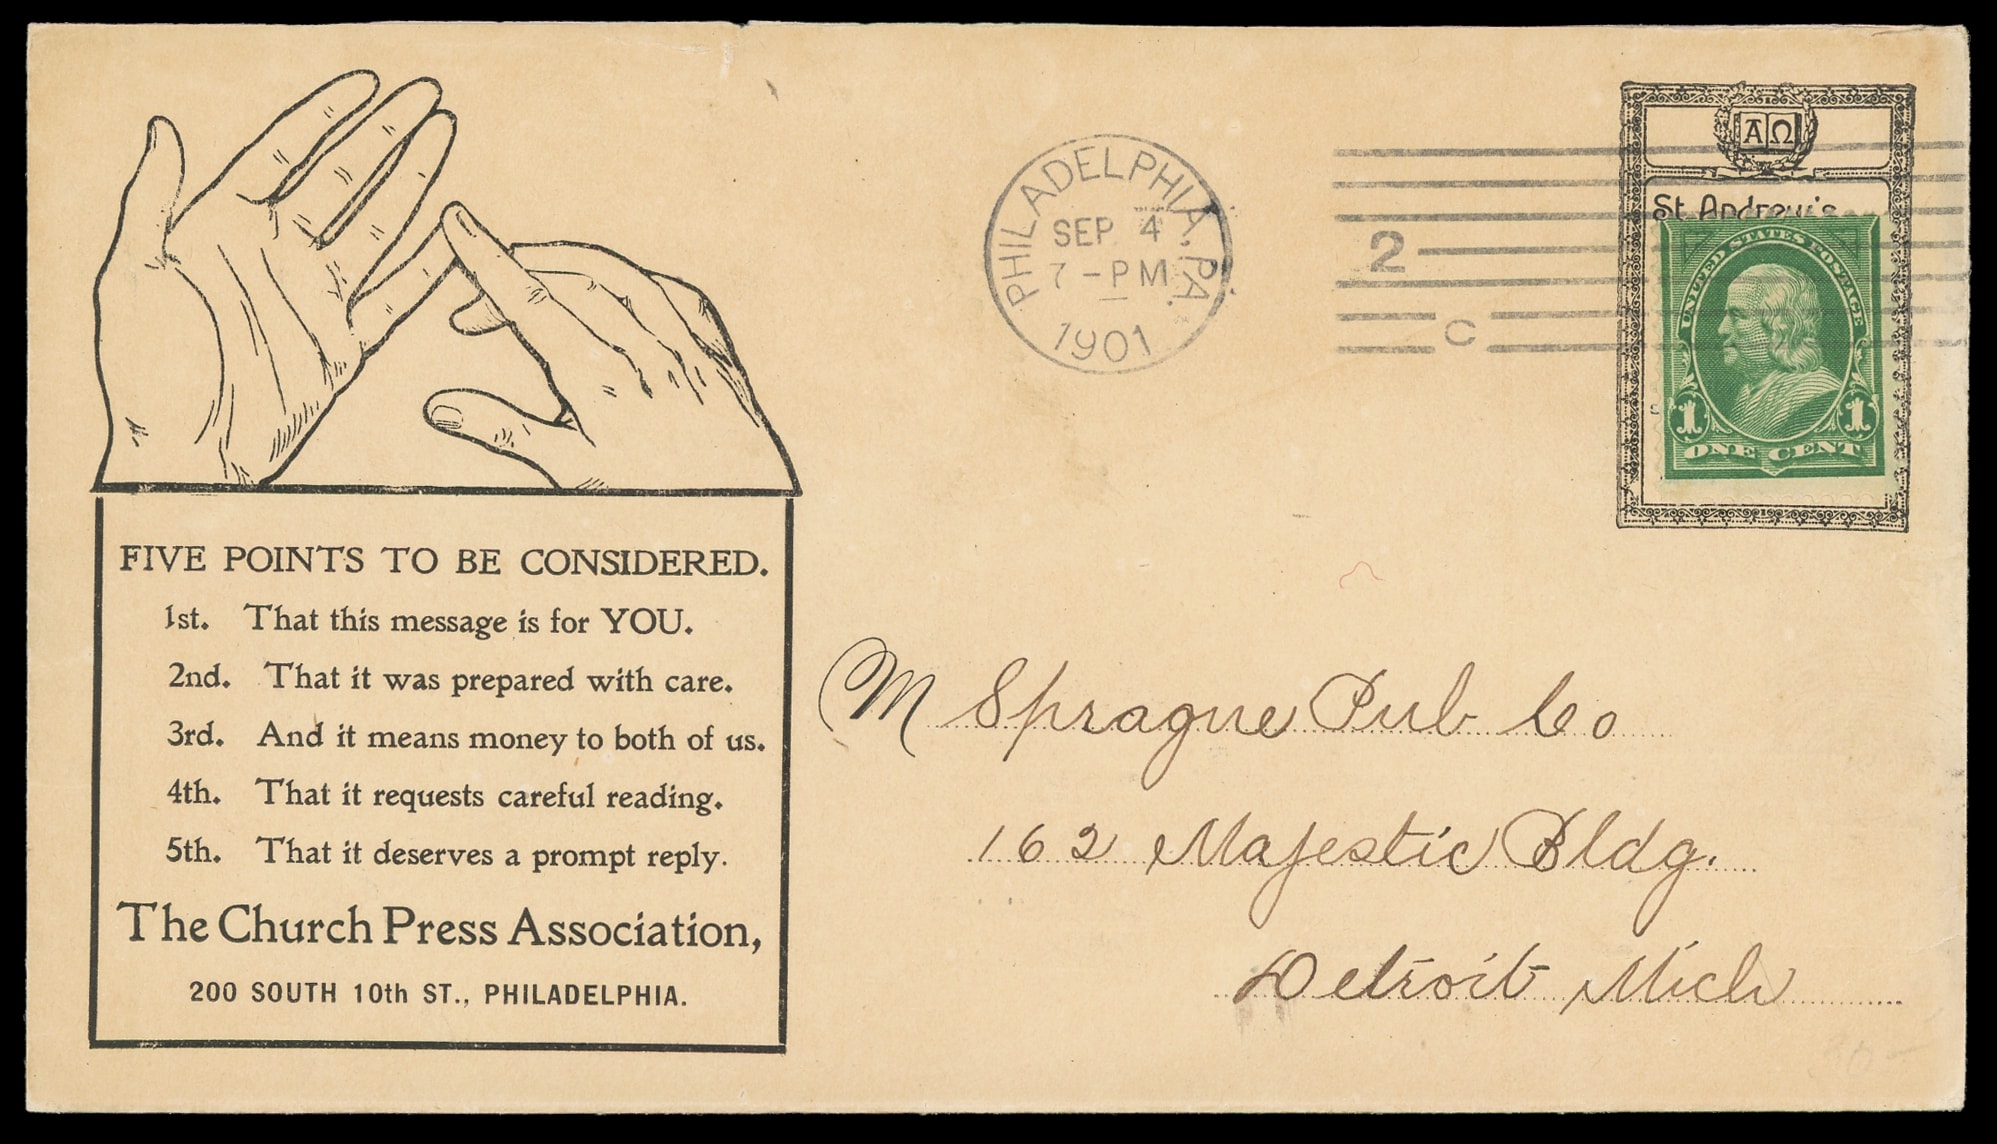 FIVE POINTS TO BE CONSIDERED.
1st. That this message is for YOU.
2nd. That it was prepared with care.
3rd. And it means money to both of us.
4th. That it requests careful reading.
5th. That it deserves a prompt reply.
The Church Press Association,
200 SOUTH 10th ST., PHILADELPHIA.
PHILADELPHIA, PA.
SEP 4
7-PM
1901
2
C
Α Ω
St. Andrew's
UNITED STATES POSTAGE
1 1
ONE CENT
M Sprague Pub Co
162 Majestic Bldg.
Detroit Mich